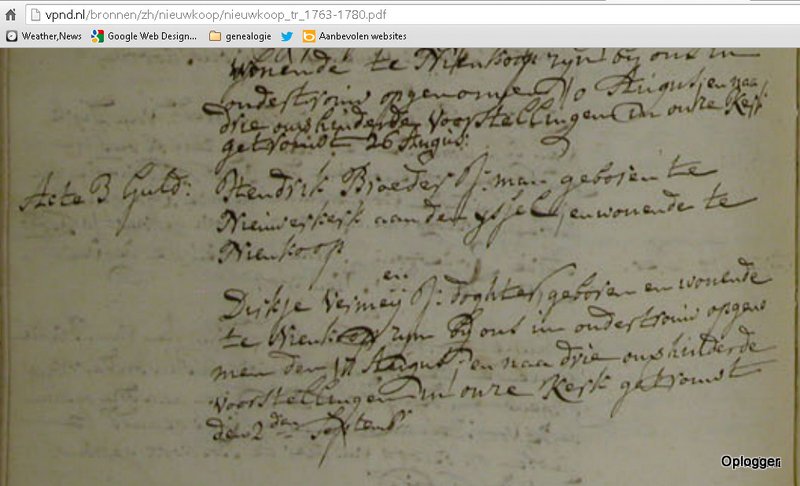 vpnd.nl/bronnen/zh/nieuwkoop/nieuwkoop_tr_1763-1780.pdf
Weather,News Google Web Design... genealogie Aanbevolen websites
wonende te Nieukoop zijn bij ons in
ondertrouw opgenomen 10 Augus: en naa
drie onverhinderde voorstellingen in onze Kerk
getrouwt 26 Augus:
Acte 3 Guld: Hendrik Broeder J: man geboren te
Nieuwerkerk aan den yssel, en wonende te
Nieukoop
en
Dirkje Vermeij J: doghter, geboren en wonende
te Nieukoop zijn bij ons in ondertrouw opgeno
men den 17 Augus: en naa drie onverhinderde
voorstellingen in onze Kerk getrouwt
den 2den Septemb:
Oplogger